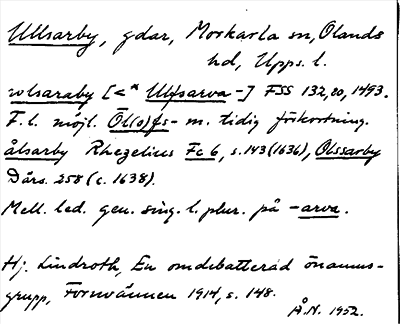 Ullsarby, gdar, Morkarla sn, Olands
hd, Upps. l.
wlsaraby [<* Ulfsarva-] FSS 132, 20, 1493.
F. l. möjl. Ōl(o)fs- m. tidig förkortning.
ålsarby Rhezelius Fc 6, s. 143 (1636), Olssarby
Dårs. 258 (c. 1638).
Mell. led. gen. sing. l. plur. på -arva.
Hj. Lindroth, En omdebatterad önamns-
grupp, Fornvännen 1914, s. 148.
Å.N. 1952.